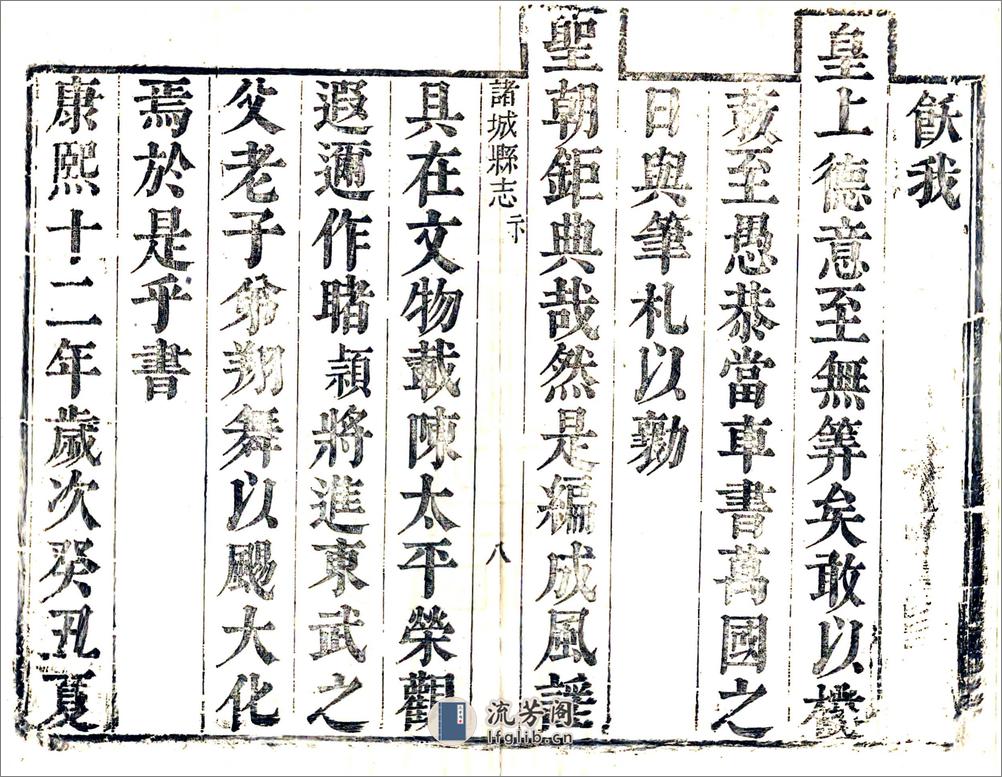 飫我
皇上德意至無筭矣敢以樸
菽至愚恭當車書萬國之
日與筆札以勤
聖朝鉅典哉然是編成風謡
諸城縣志 八
具在文物載陳太平榮觀
遐邇作睹頴將進東武之
父老子弟翔舞以颺大化
焉於是乎書
康熙十二年歲次癸丑夏
流芳阁
lfglib.cn